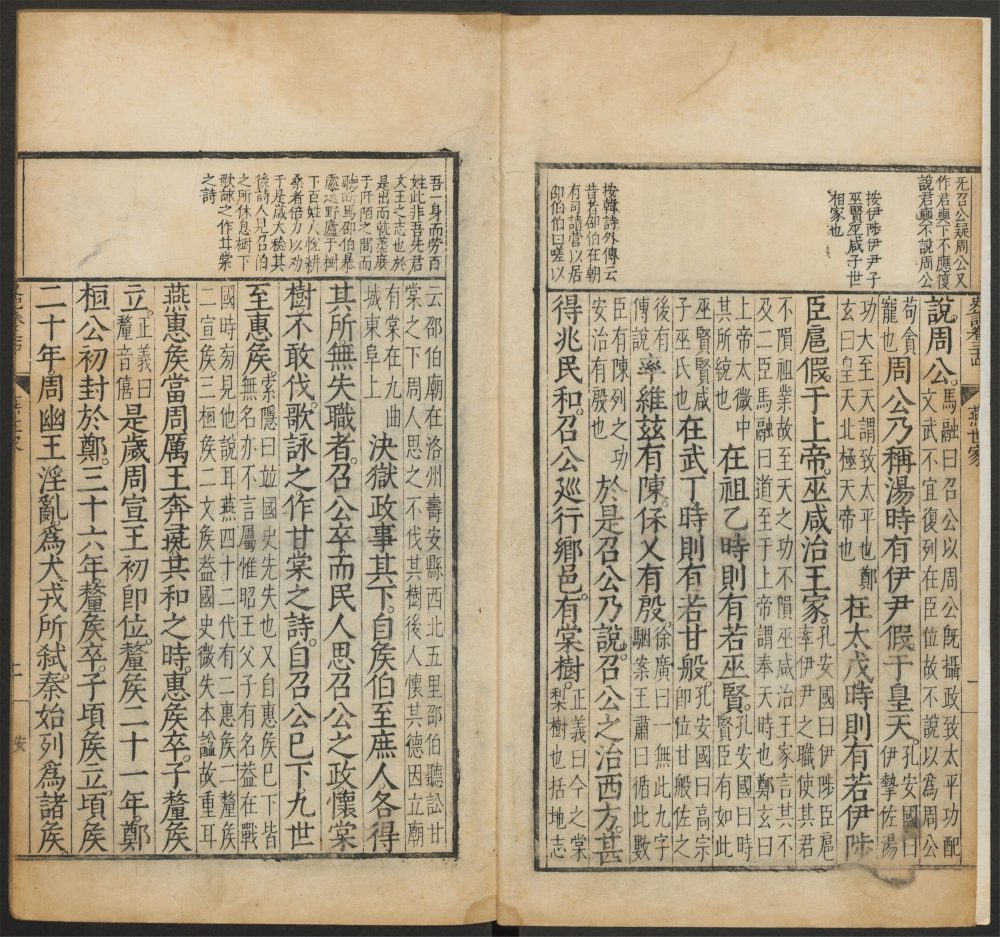 旡召公疑周公又
作君奭下不應復
說君奭不說周公
按伊陟伊尹子
巫賢巫咸子世
相家也
按韓詩外傳云
昔者卲伯在朝
有司請營以居
卲伯伯曰嗟以
燕世家
說周公。馬融曰召公以周公旣攝政致太平功配文武不宜復列在臣位故不說以爲周公
苟貪寵也周公乃稱湯時有伊尹假于皇天。孔安國曰伊摯佐湯
功大至天謂致太平也鄭玄曰皇天北極天帝也在太戊時則有若伊陟
臣扈假于上帝巫咸治王家。孔安國曰伊陟臣扈率伊尹之職使其君
不隕祖業故至天之功不隕巫咸治王家言其不及二臣馬融曰道至于上帝謂奉天時也鄭玄曰
上帝太微中其所統也在祖乙時則有若巫賢。孔安國曰時賢臣有如此
巫賢賢咸子巫氏也在武丁時則有若甘般。孔安國曰高宗即位甘般佐之
後有傅說率維茲有陳保乂有殷。徐廣曰一無此九字駰案王肅曰循此數
臣有陳列之功安治有殷也於是召公乃說。召公之治西方甚
得兆民和。召公巡行鄉邑。有棠樹。正義曰今之棠梨樹也括地志
吾一身而勞百
姓此非吾先君
文王之志也於
是出而就蒸庶
于阡陌之間而
聽斷焉卲伯暴
處遠野廬于樹
下百姓人悅耕
桑者倍力以勸
于是歲大稔其
後詩人見召伯
之所休息樹下
歌詠之作甘棠
之詩
云邵伯廟在洛州壽安縣西北五里邵伯聽訟甘棠之下周人思之不伐其樹後人懷其德因立廟
有棠在九曲城東阜上決獄政事其下。自矦伯至庶人各得
其所無失職者。召公卒而民人思召公之政懷棠
樹不敢伐。歌詠之作甘棠之詩。自召公已下九世
至惠矦。索隱曰並國史先失也又自惠矦已下皆無名亦不言屬惟昭王父子有名葢在戰
國時旁見他說耳燕四十二代有二惠矦二釐矦二宣矦三桓矦二文矦葢國史微失本謚故重耳
燕惠矦當周厲王奔彘共和之時。惠矦卒。子釐矦
立。正義曰釐音僖是歲周宣王初即位釐矦二十一年。鄭
桓公初封於鄭。三十六年釐矦卒。子頃矦立。頃矦
二十年。周幽王淫亂爲犬戎所弒。秦始列爲諸矦。
安